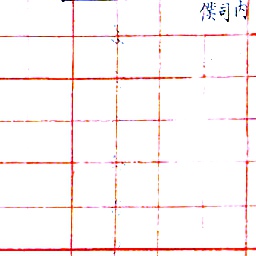 僕司内